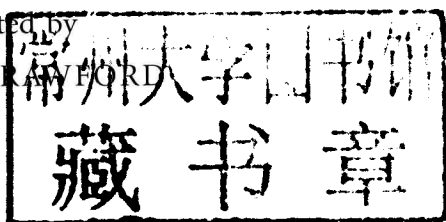 ted by
RAWFORD
常州大学图书馆
藏书章